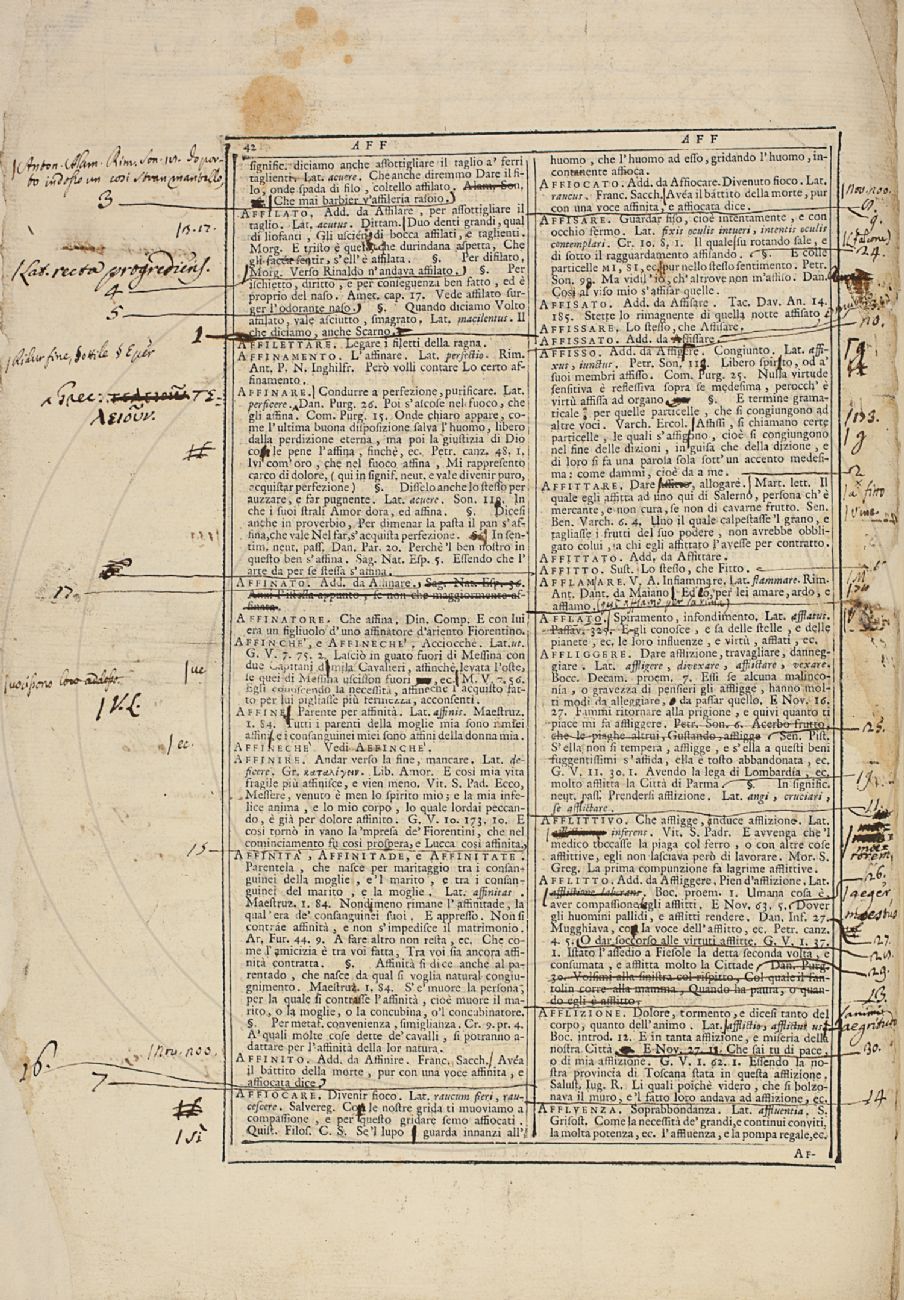 42 AFF
signific. diciamo anche assottigliare il taglio a' ferri
taglienti. Lat. acuere. Che anche diremmo Dare il fi-
lo, onde spada di filo, coltello affilato. Alam. Son.
Che mai barbier v'affileria rasoio.
AFFILATO. Add. da Affilare, per assottigliare il
taglio. Lat. acutus. Dittam. Duo denti grandi, qual
di liofanti, Gli uscien di bocca affilati, e taglienti.
Morg. E tristo è quel che durindana aspetta, Che
gli facce sentir, s'ell' è affilata. §. Per difilato,
Morg. Verso Rinaldo n'andava affilato. §. Per
ischietto, diritto, e per conseguenza ben fatto, ed è
proprio del naso. Amet. cap. 17. Vede affilato sur-
ger l'odorante naso. §. Quando diciamo Volto
affilato, vale asciutto, smagrato, Lat. macilentus. Il
che diciamo, anche Scarno.
AFFILETTARE. Legare i filetti della ragna.
AFFINAMENTO. L'affinare. Lat. perfectio. Rim.
Ant. P. N. Inghilfr. Però volli contare Lo certo af-
finamento.
AFFINARE. Condurre a perfezione, purificare. Lat.
perficere. Dan. Purg. 26. Poi s'ascose nel fuoco, che
gli affina. Com. Purg. 15. Onde chiaro appare, co-
me l'ultima buona disposizione salva l'huomo, libero
dalla perdizione eterna, ma poi la giustizia di Dio
con le pene l'affina, finchè, ec. Petr. canz. 48. 1.
Ivi com' oro, che nel fuoco affina, Mi rappresento
carco di dolore, (qui in signif. neut. e vale divenir puro,
acquistar perfezione) §. Disselo anche lo stesso per
auzzare, e far pugnente. Lat. acuere. Son. 119. In
che i suoi strali Amor dora, ed affina. §. Dicesi
anche in proverbio, Per dimenar la pasta il pan s'af-
fina, che vale Nel far, s'acquista perfezione. §. In sen-
tim. neut. pass. Dan. Par. 20. Perchè 'l ben nostro in
questo ben s'affina. Sag. Nat. Esp. 5. Essendo che l'
arte da per se stessa s'affina.
AFFINATO. Add. da Affinare. Sag. Nat. Esp. 36.
Anzi l'istessa appunto, se non che maggiormente af-
finata.
AFFINATORE. Che affina. Din. Comp. E con lui
era un figliuolo d'uno affinatore d'ariento Fiorentino.
AFFINCHE', e AFFINECHE'. Acciocchè. Lat. ut.
G. V. 7. 75. 2. Lasciò in guato fuori di Messina con
due Capitani dumila Cavalieri, affinchè levata l'oste,
se quei di Messina uscisson fuori, ec. M. V. 7. 56.
Egli conoscendo la necessità, affineche l'acquisto fat-
to per lui pigliasse più fermezza, acconsentì.
AFFINE. Parente per affinità. Lat. affinis. Maestruz.
1. 84. Tutti i parenti della moglie mia sono a me
affini, e i consanguinei miei sono affini della donna mia.
AFFINECHE' Vedi AFFINCHE'.
AFFINIRE. Andar verso la fine, mancare. Lat. de-
ficere. Gr. καταλίγειν. Lib. Amor. E così mia vita
fragile più affinisce, e vien meno. Vit. S. Pad. Ecco,
Messere, venuto è men lo spirito mio; e la mia infe-
lice anima, e lo mio corpo, lo quale lordai peccan-
do, è già per dolore affinito. G. V. 10. 173. 10. E
così tornò in vano la 'mpresa de' Fiorentini, che nel
cominciamento fu così prospera, e Lucca così affinita.
AFFINITA', AFFINITADE, e AFFINITATE.
Parentela, che nasce per maritaggio tra i consan-
guinei della moglie, e 'l marito, e tra i consan-
guinei del marito, e la moglie. Lat. affinitas.
Maestruz. 1. 84. Nondimeno rimane l'affinitade, la
qual'era de' consanguinei suoi. E appresso. Non si
contrae affinità, e non s'impedisce il matrimonio.
Ar. Fur. 44. 9. A fare altro non resta, ec. Che co-
me l'amicizia è tra voi fatta, Tra voi sia ancora affi-
nità contratta. §. Affinità si dice anche al pa-
rentado, che nasce da qual si voglia natural congiu-
gnimento. Maestruz. 1. 84. S'e' muore la persona,
per la quale si contrasse l'affinità, cioè muore il ma-
rito, o la moglie, o la concubina, o'l concubinatore.
§. Per metaf. convenienza, simiglianza. Cr. 9. pr. 4.
A' quali molte cose dette de' cavalli, si potranno a-
dattare per l'affinità della lor natura.
AFFINITO. Add. da Affinire. Franc. Sacch. Avéa
il báttito della morte, pur con una voce affinita, e
affiocata dice.
AFFIOCARE. Divenir fioco. Lat. raucum fieri, rau-
cescere. Salvereg. Con le nostre grida ti muoviamo a
compassione, e per questo gridare semo affiocati.
Quist. Filos. C. S. Se'l lupo guarda innanzi all'
AFF
huomo, che l'huomo ad esso, gridando l'huomo, in-
contanente affioca.
AFFIOCATO. Add. da Affiocare. Divenuto fioco. Lat.
raucus. Franc. Sacch. Avéa il báttito della morte, pur
con una voce affinita, e affiocata dice.
AFFISARE. Guardar fiso, cioè intentamente, e con
occhio fermo. Lat. fixis oculis intueri, intentis oculis
contemplari. Cr. 10. 8. 1. Il quale su rotando sale, e
di sotto il ragguardamento affisando. §. E colle
particelle MI, SI, ec. pur nello stesso sentimento. Petr.
Son. 99. Ma vidil' io, ch'altrove non m'affiso. Dan.
Così al viso mio s'affisar quelle.
AFFISATO. Add. da Affisare. Tac. Dav. An. 14.
185. Stette lo rimagnente di quella notte affisato
AFFISSARE. Lo stesso, che Affisare.
AFFISSATO. Add. da Affissare.
AFFISSO. Add. da Affigere. Congiunto. Lat. affi-
xus, iunctus. Petr. Son. 113. Libero spirito, od a'
suoi membri affisso. Com. Purg. 25. Nulla virtude
sensitiva è reflessiva sopra se medesima, perocch' è
virtù affissa ad organo §. E termine grama-
ticale, per quelle particelle, che si congiungono ad
altre voci. Varch. Ercol. Affissi, si chiamano certe
particelle, le quali s'affigono, cioè si congiungono
nel fine delle dizioni, in guisa che della dizione, e
di loro si fa una parola sola sott' un accento medesi-
ma: come dammi, cioè da a me.
AFFITTARE. Dare allogare. Mart. lett. Il
quale egli affitta ad uno qui di Salerno, persona ch' è
mercante, e non cura, se non di cavarne frutto. Sen.
Ben. Varch. 6. 4. Uno il quale calpestasse 'l grano, e
tagliasse i frutti del suo podere, non avrebbe obbli-
gato colui, a chi egli affittato l'avesse per contratto.
AFFITTATO. Add. da Affittare.
AFFITTO. Sust. Lo stesso, che Fitto.
AFFLAMARE. V. A. Infiammare. Lat. flammare. Rim.
Ant. Dant. da Maiano. Ed io, per lei amare, ardo, e
afflamo (qui afflamo per la rima)
AFFLATO. Spiramento, infondimento. Lat. afflatus.
Passav. 325. E gli conosce, e sa delle stelle, e delle
pianete, ec. le loro influenze, e virtù, afflati, ec.
AFFLIGGERE. Dare afflizione, travagliare, danneg-
giare. Lat. affligere, divexare, afflictare, vexare.
Bocc. Decam. proem. 7. Essi se alcuna malinco-
nia, o gravezza di pensieri gli affligge, hanno mol-
ti modi da alleggiare, o da passar quello. E Nov. 16.
27. Fammi ritornare alla prigione, e quivi quanto ti
piace mi fa affliggere. Petr. Son. 6. Acerbo frutto,
che le piaghe altrui, Gustando, affligge Sen. Pist.
S'ella non si tempera, affligge, e s'ella a questi beni
fuggentissimi s'affida, ella è tosto abbandonata, ec.
G. V. 11. 30. 1. Avendo la lega di Lombardía, ec.
molto afflitta la Città di Parma §. In signific.
neut. pass. Prendersi afflizione. Lat. angi, cruciari,
se afflictare.
AFFLITTIVO. Che affligge, induce afflizione. Lat.
inferens. Vit. S. Padr. E avvenga che 'l
medico toccasse la piaga col ferro, o con altre cose
afflittive, egli non lasciava però di lavorare. Mor. S.
Greg. La prima compunzione fa lagrime afflittive.
AFFLITTO. Add. da Affliggere, Pien d'afflizione. Lat.
afflictione laborans. Boc. proem. 1. Umana cosa è
aver compassione agli afflitti. E Nov. 63. 5. Dover
gli huomini pallidi, e afflitti rendere. Dan. Inf. 27.
Mugghiava, con la voce dell'afflitto, ec. Petr. canz.
4. 5. O dar soccorso alle virtuti afflitte. G. V. 1. 37.
1. Istato l'assedio a Fiesole la detta seconda volta, e
consumata, e afflitta molto la Cittade Dan. Purg.
30. Volsimi alla sinistra col rispitto, Col quale il fan-
tolin corre alla mamma, Quando ha paura, o quan-
do egli è afflitto.
AFFLIZIONE. Dolore, tormento, e dicesi tanto del
corpo, quanto dell'animo. Lat. afflictio, afflictus us.
Boc. introd. 12. E in tanta afflizione, e miseria della
nostra Città E Nov. 27. 13. Che sai tu di pace,
o di mia afflizione. G. V. 1. 62. 1. Essendo la no-
stra provincia di Toscana stata in questa afflizione.
Salust. Iug. R. Li quali poichè videro, che si bolzo-
nava il muro, e'l fatto loro andava ad afflizione, ec.
AFFLUENZA. Soprabbondanza. Lat. affluentia. S.
Grisost. Come la necessità de' grandi, e continui conviti,
la molta potenza, ec. l'affluenza, e la pompa regale, ec.
AF-
3
12.17.
Lat. recta progrediens.
4
5
1
17
ue
ec.
15
Nov. 100.
16.
7
si
Nov. 100.
9.
24.
no.
133.
2
a fitto
25.
11.
26.
aeger,
moestus
27.
29.
13.
animi
aegritudo
30.
14